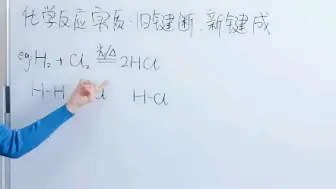 化学反应实质:旧键断.新键成
eg:H₂+Cl₂ 光/△ 2HCl
H-H Cl H-Cl